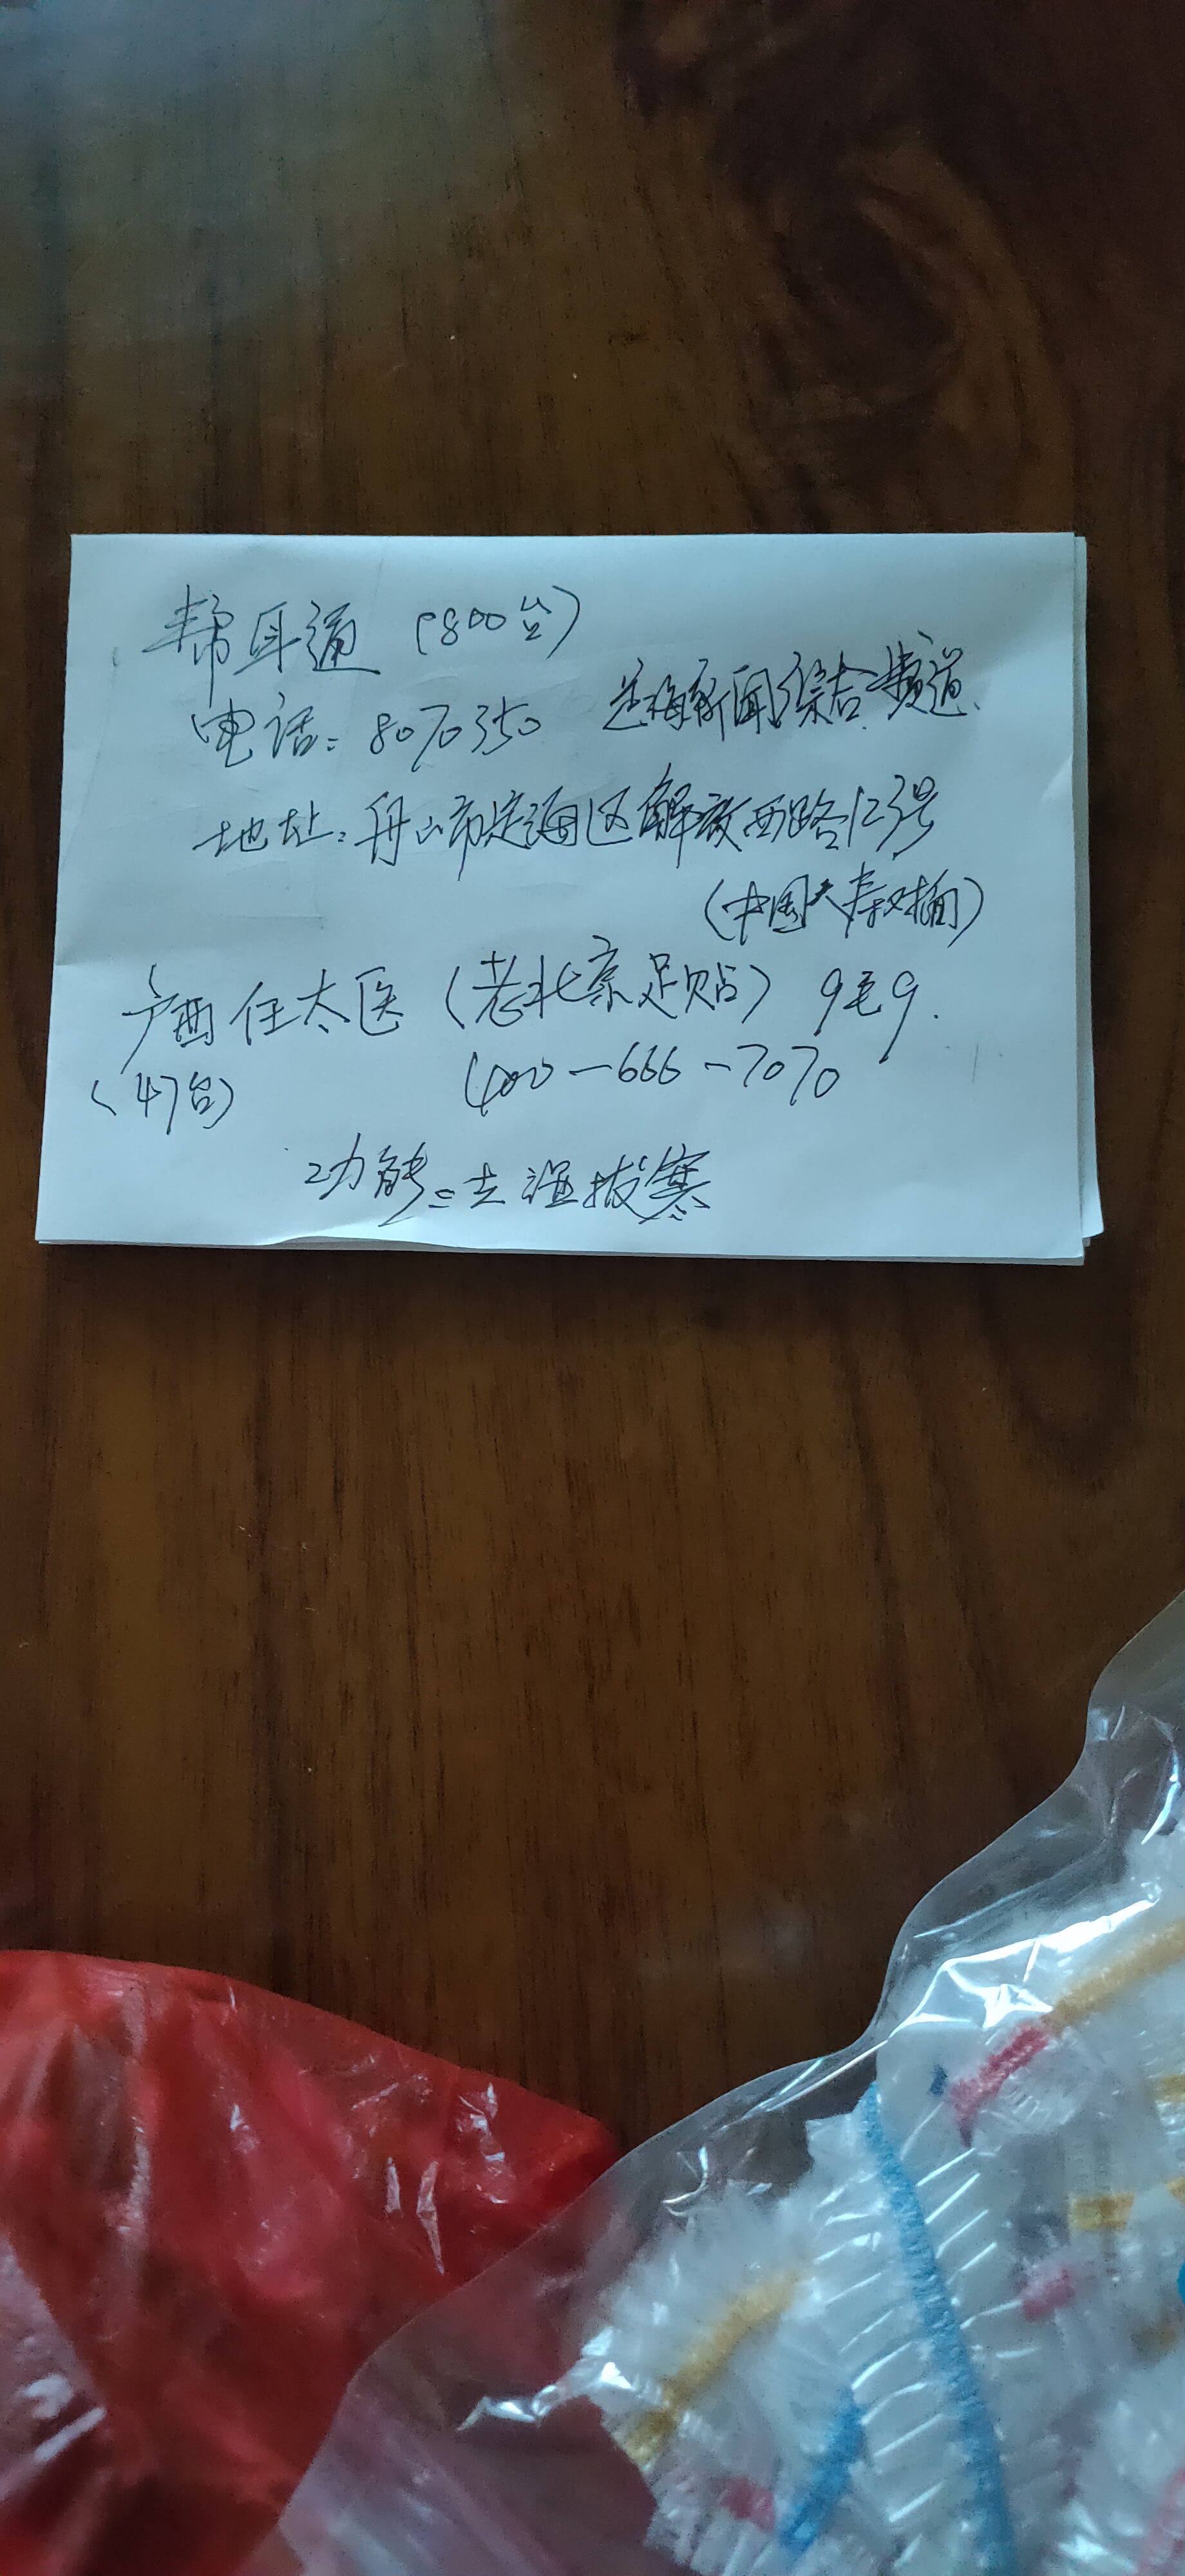 帮耳通 (800台)
电话：8070350 定海新闻综合频道.
地址：舟山市定海区解放西路123号
(中国人寿对面)
广西任太医 (老北京足贴) 9毛9.
(47台) 400-666-7070
功能：去湿拔寒